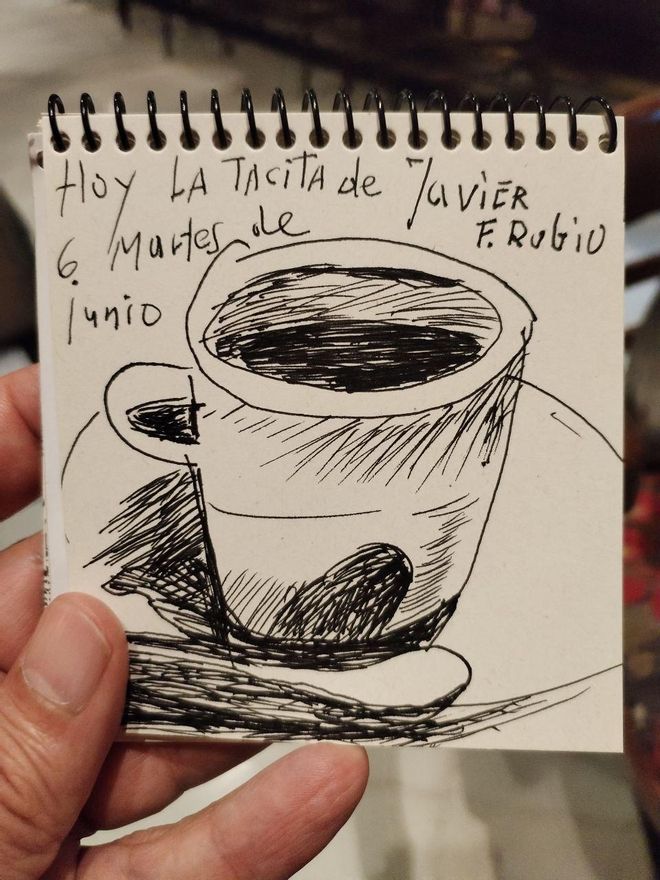 Hoy LA TACITA de JAVIER
F. RUBIO
6 Martes de
junio